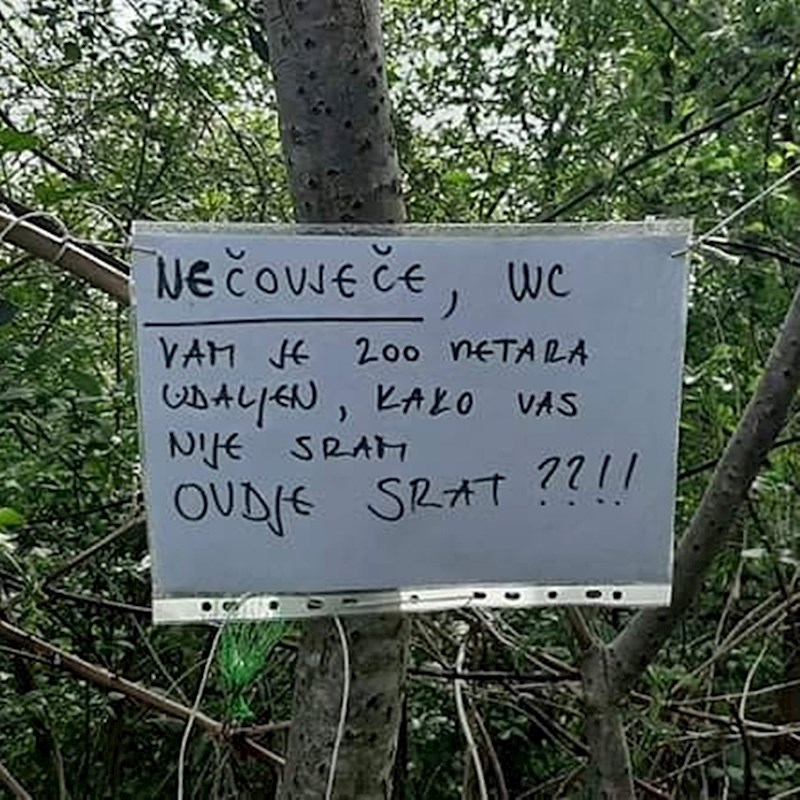 NEČOVJEČE, WC
VAM JE 200 METARA
UDALJEN, KAKO VAS
NIJE SRAM
OVDJE SRAT ??!!